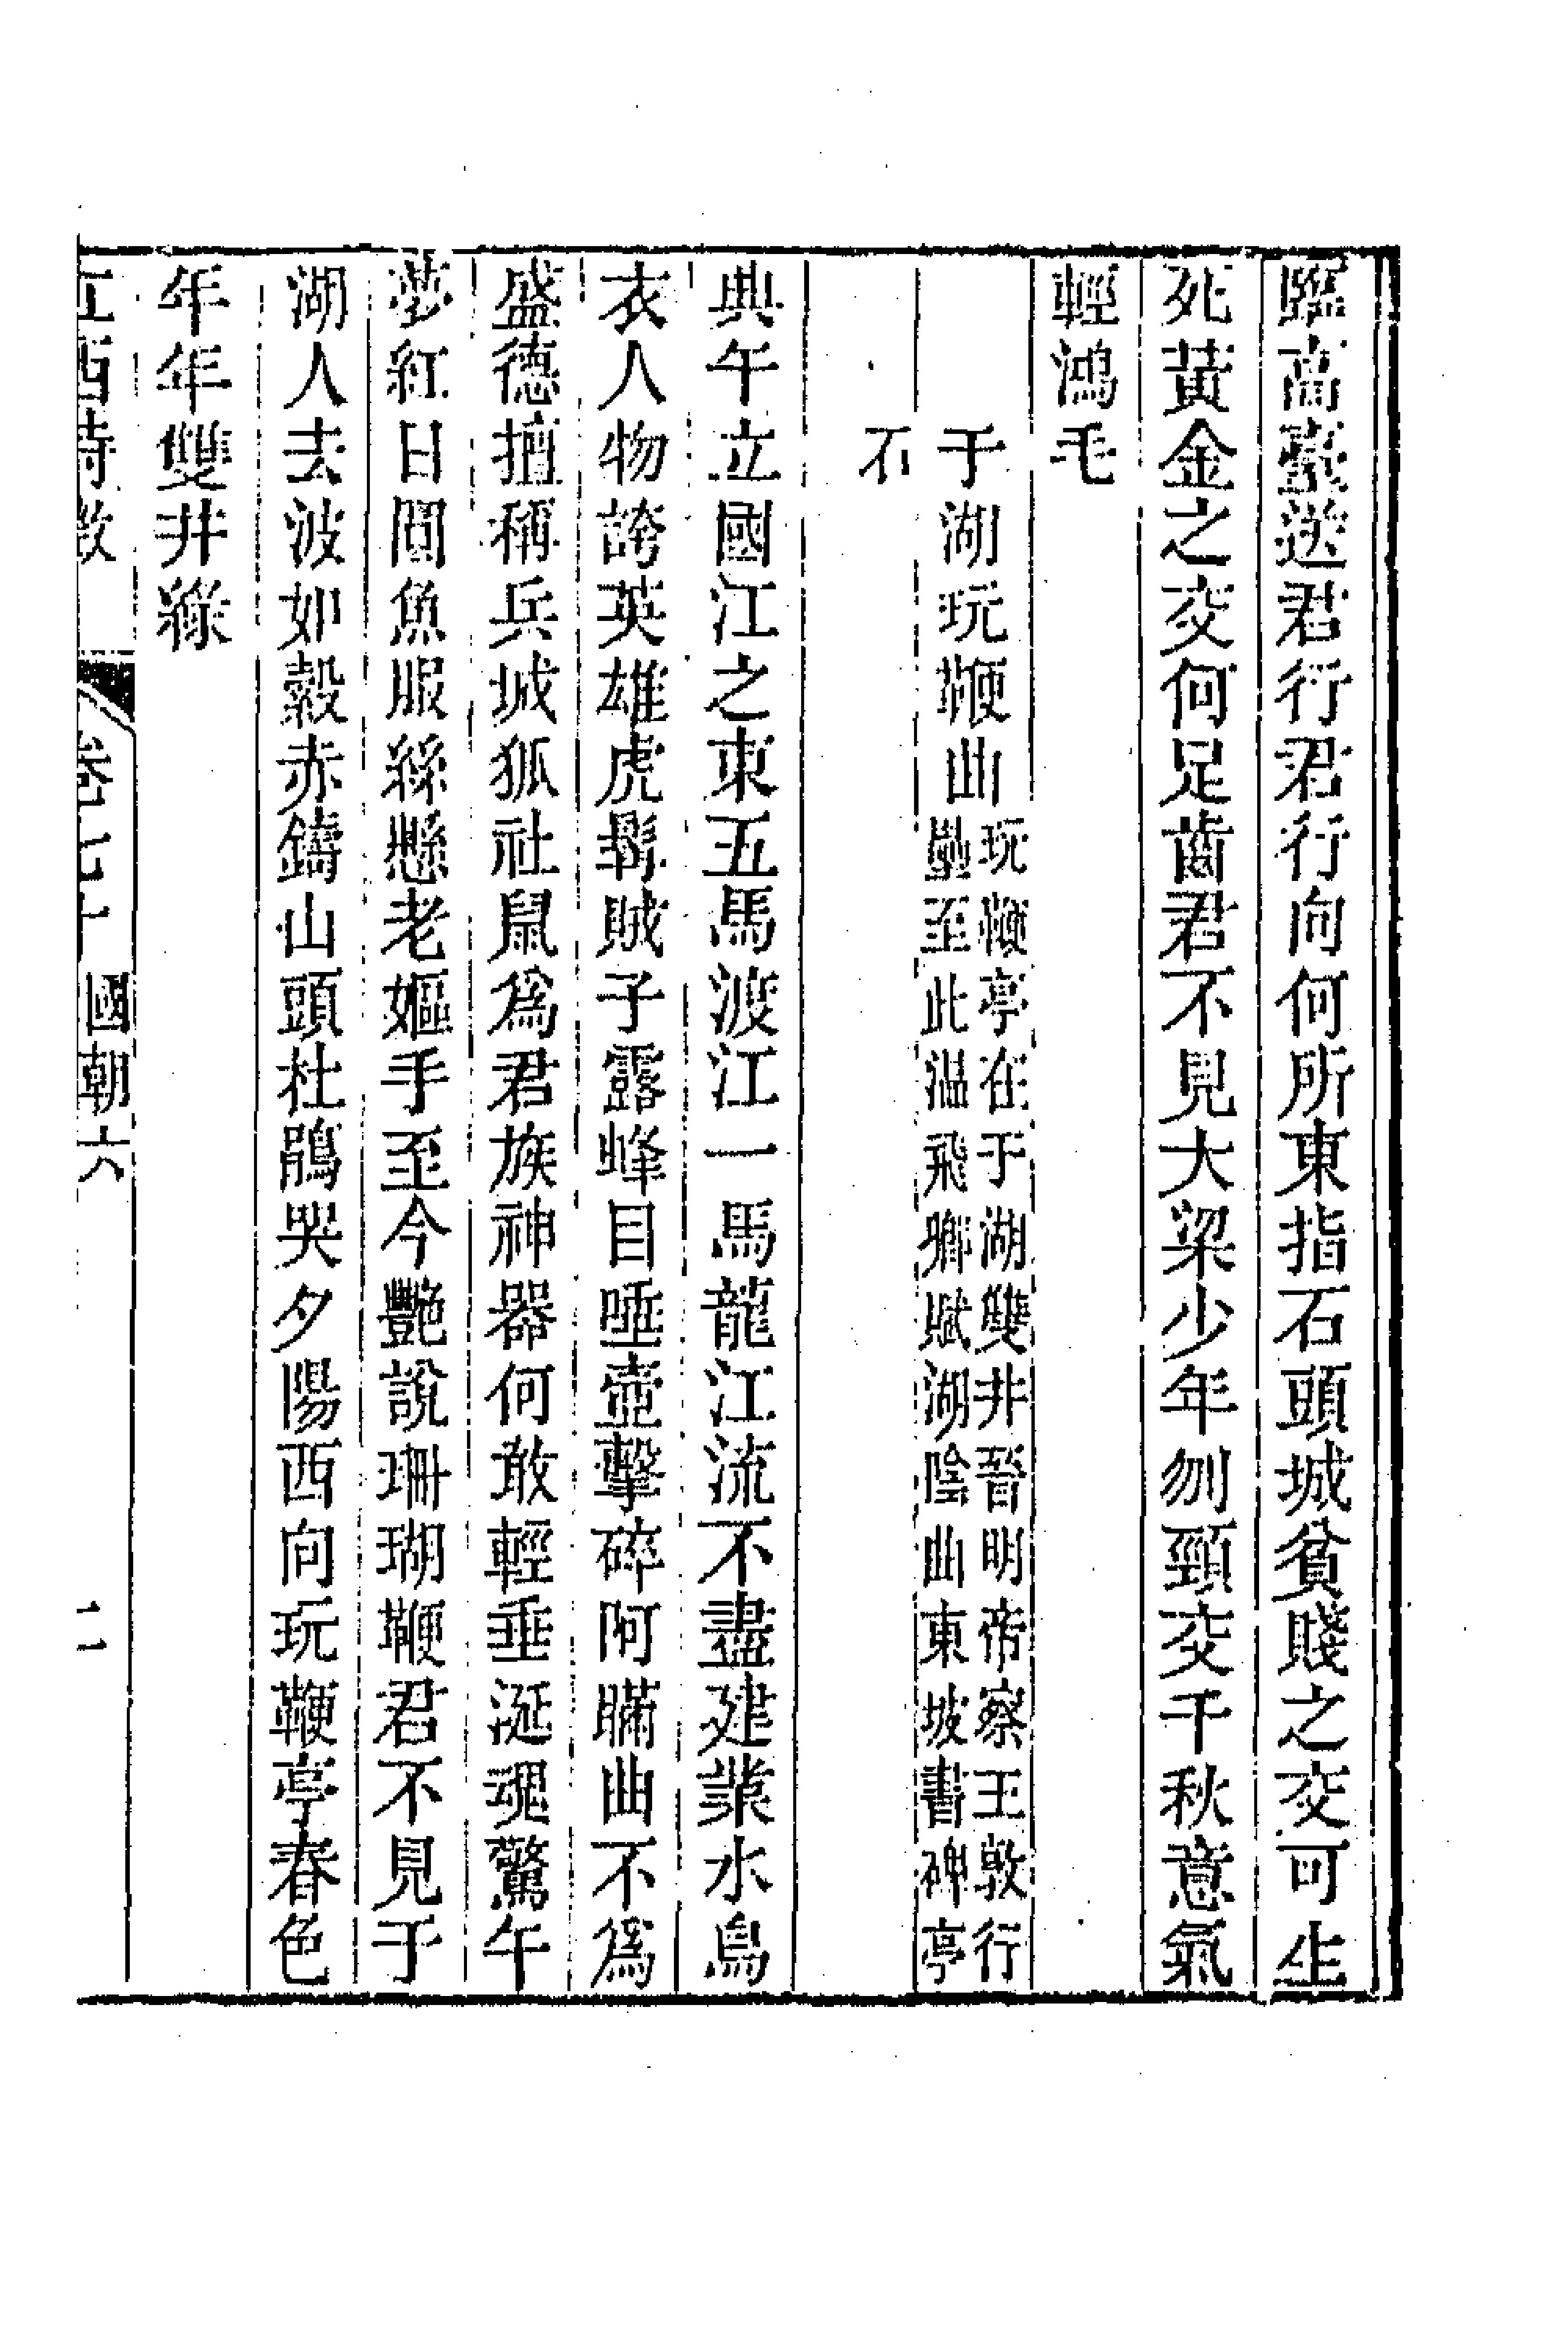 臨高臺送君行君行向何所東指石頭城貧賤之交可生
死黃金之交何足齒君不見大梁少年刎頸交千秋意氣
輕鴻毛
于湖玩鞭曲
玩鞭亭在于湖雙井晉明帝察王敦行
壘至此温飛卿賦湖陰曲東坡書碑亭
石
典午立國江之東五馬渡江一馬龍江流不盡建業水烏
衣人物誇英雄虎鬚賊子露蜂目唾壺擊碎阿瞞曲不爲
盛德擅稱兵城狐社鼠爲君族神器何敢輕垂涎魂驚午
夢紅日圓魚服絲懸老嫗手至今艷說珊瑚鞭君不見于
湖人去波如縠赤鑄山頭杜鵑哭夕陽西向玩鞭亭春色
年年雙井綠
江西詩徵
卷七十
國朝六
二